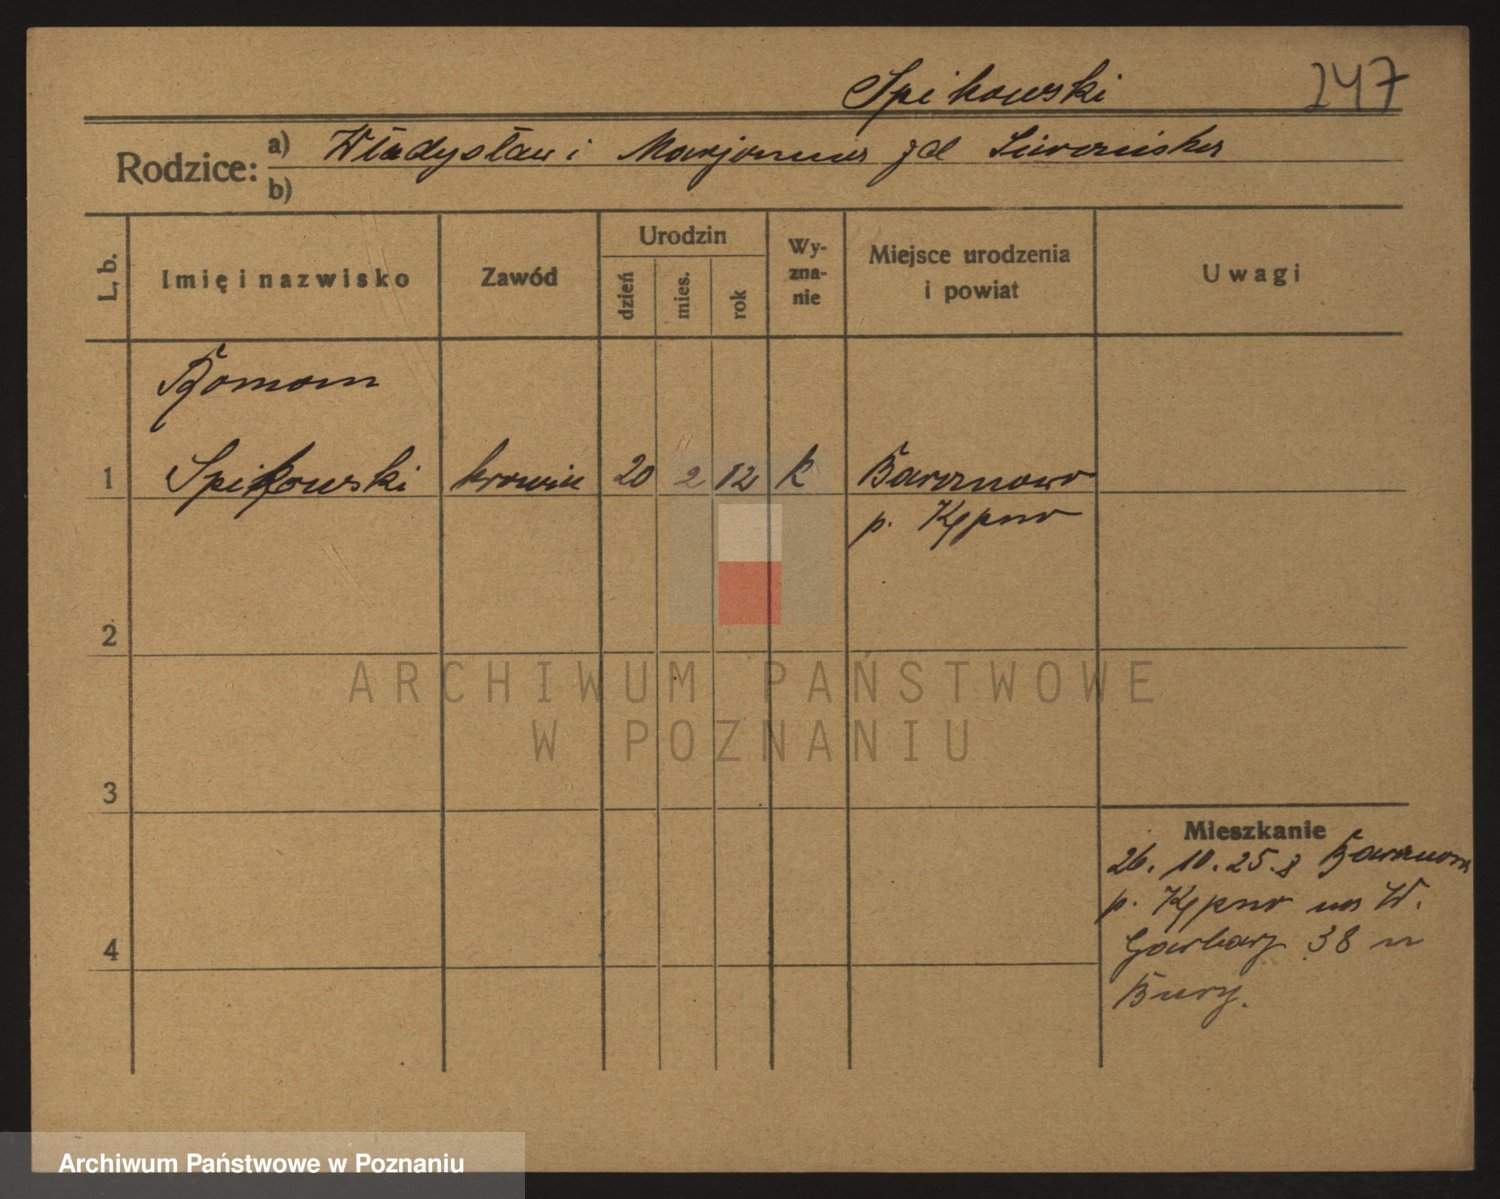 Spikowski 247
Rodzice: a) Władysław i Marjanna zd
b)
L. b. Imię i nazwisko Zawód Urodzin dzień mies. rok Wy-zna-nie Miejsce urodzenia i powiat Uwagi
Roman
1 Spikowski 20 2 12 k Baranowo
p. Kępno
2
3
4
Mieszkanie
26. 10. 25. z Baranowa
p. Kępno na W.
Garbary 38 u
Bury.
ARCHIWUM PAŃSTWOWE
W POZNANIU
Archiwum Państwowe w Poznaniu